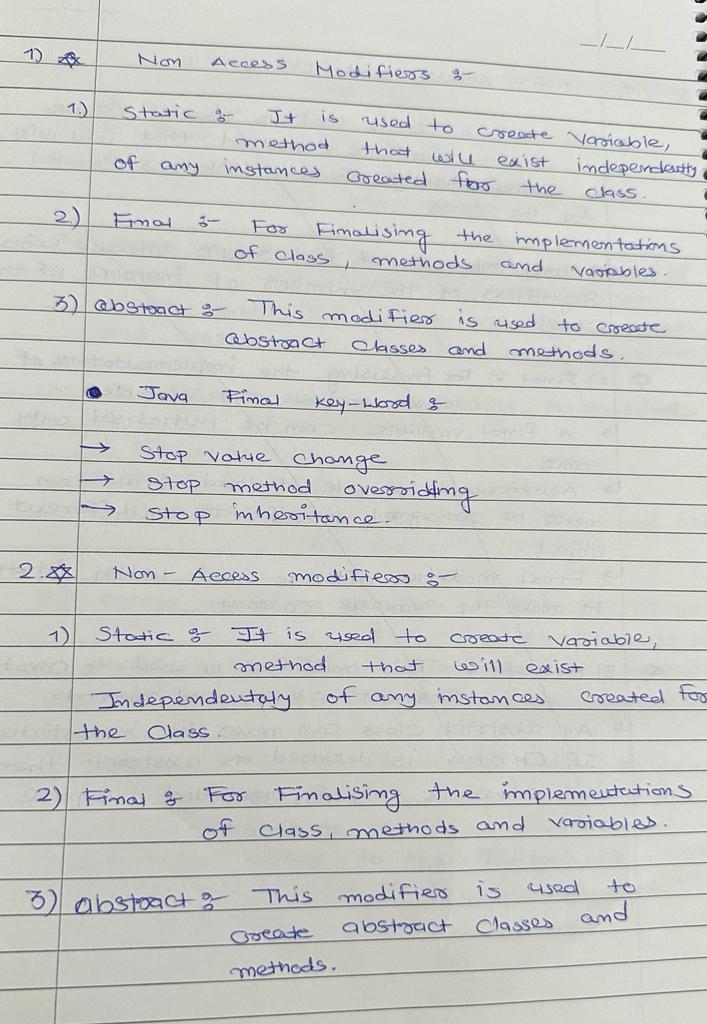 _/_/_
1) ☆ Non Access Modifiers :-
1.) Static :- It is used to create variable,
method that will exist independently
of any instances created for the class.
2.) Final :- For Finalising the implementations
of class, methods and variables.
3) abstract :- This modifier is used to create
abstract classes and methods.
• Java Final key-word :
→ Stop value change
→ Stop method overridding
→ Stop inheritance.
2. ☆ Non - Access modifiers :-
1) Static :- It is used to create variable,
method that will exist
Independentaly of any instances created for
the class.
2) Final :- For Finalising the implementations
of class, methods and variables.
3) abstract :- This modifier is used to
create abstract classes and
methods.